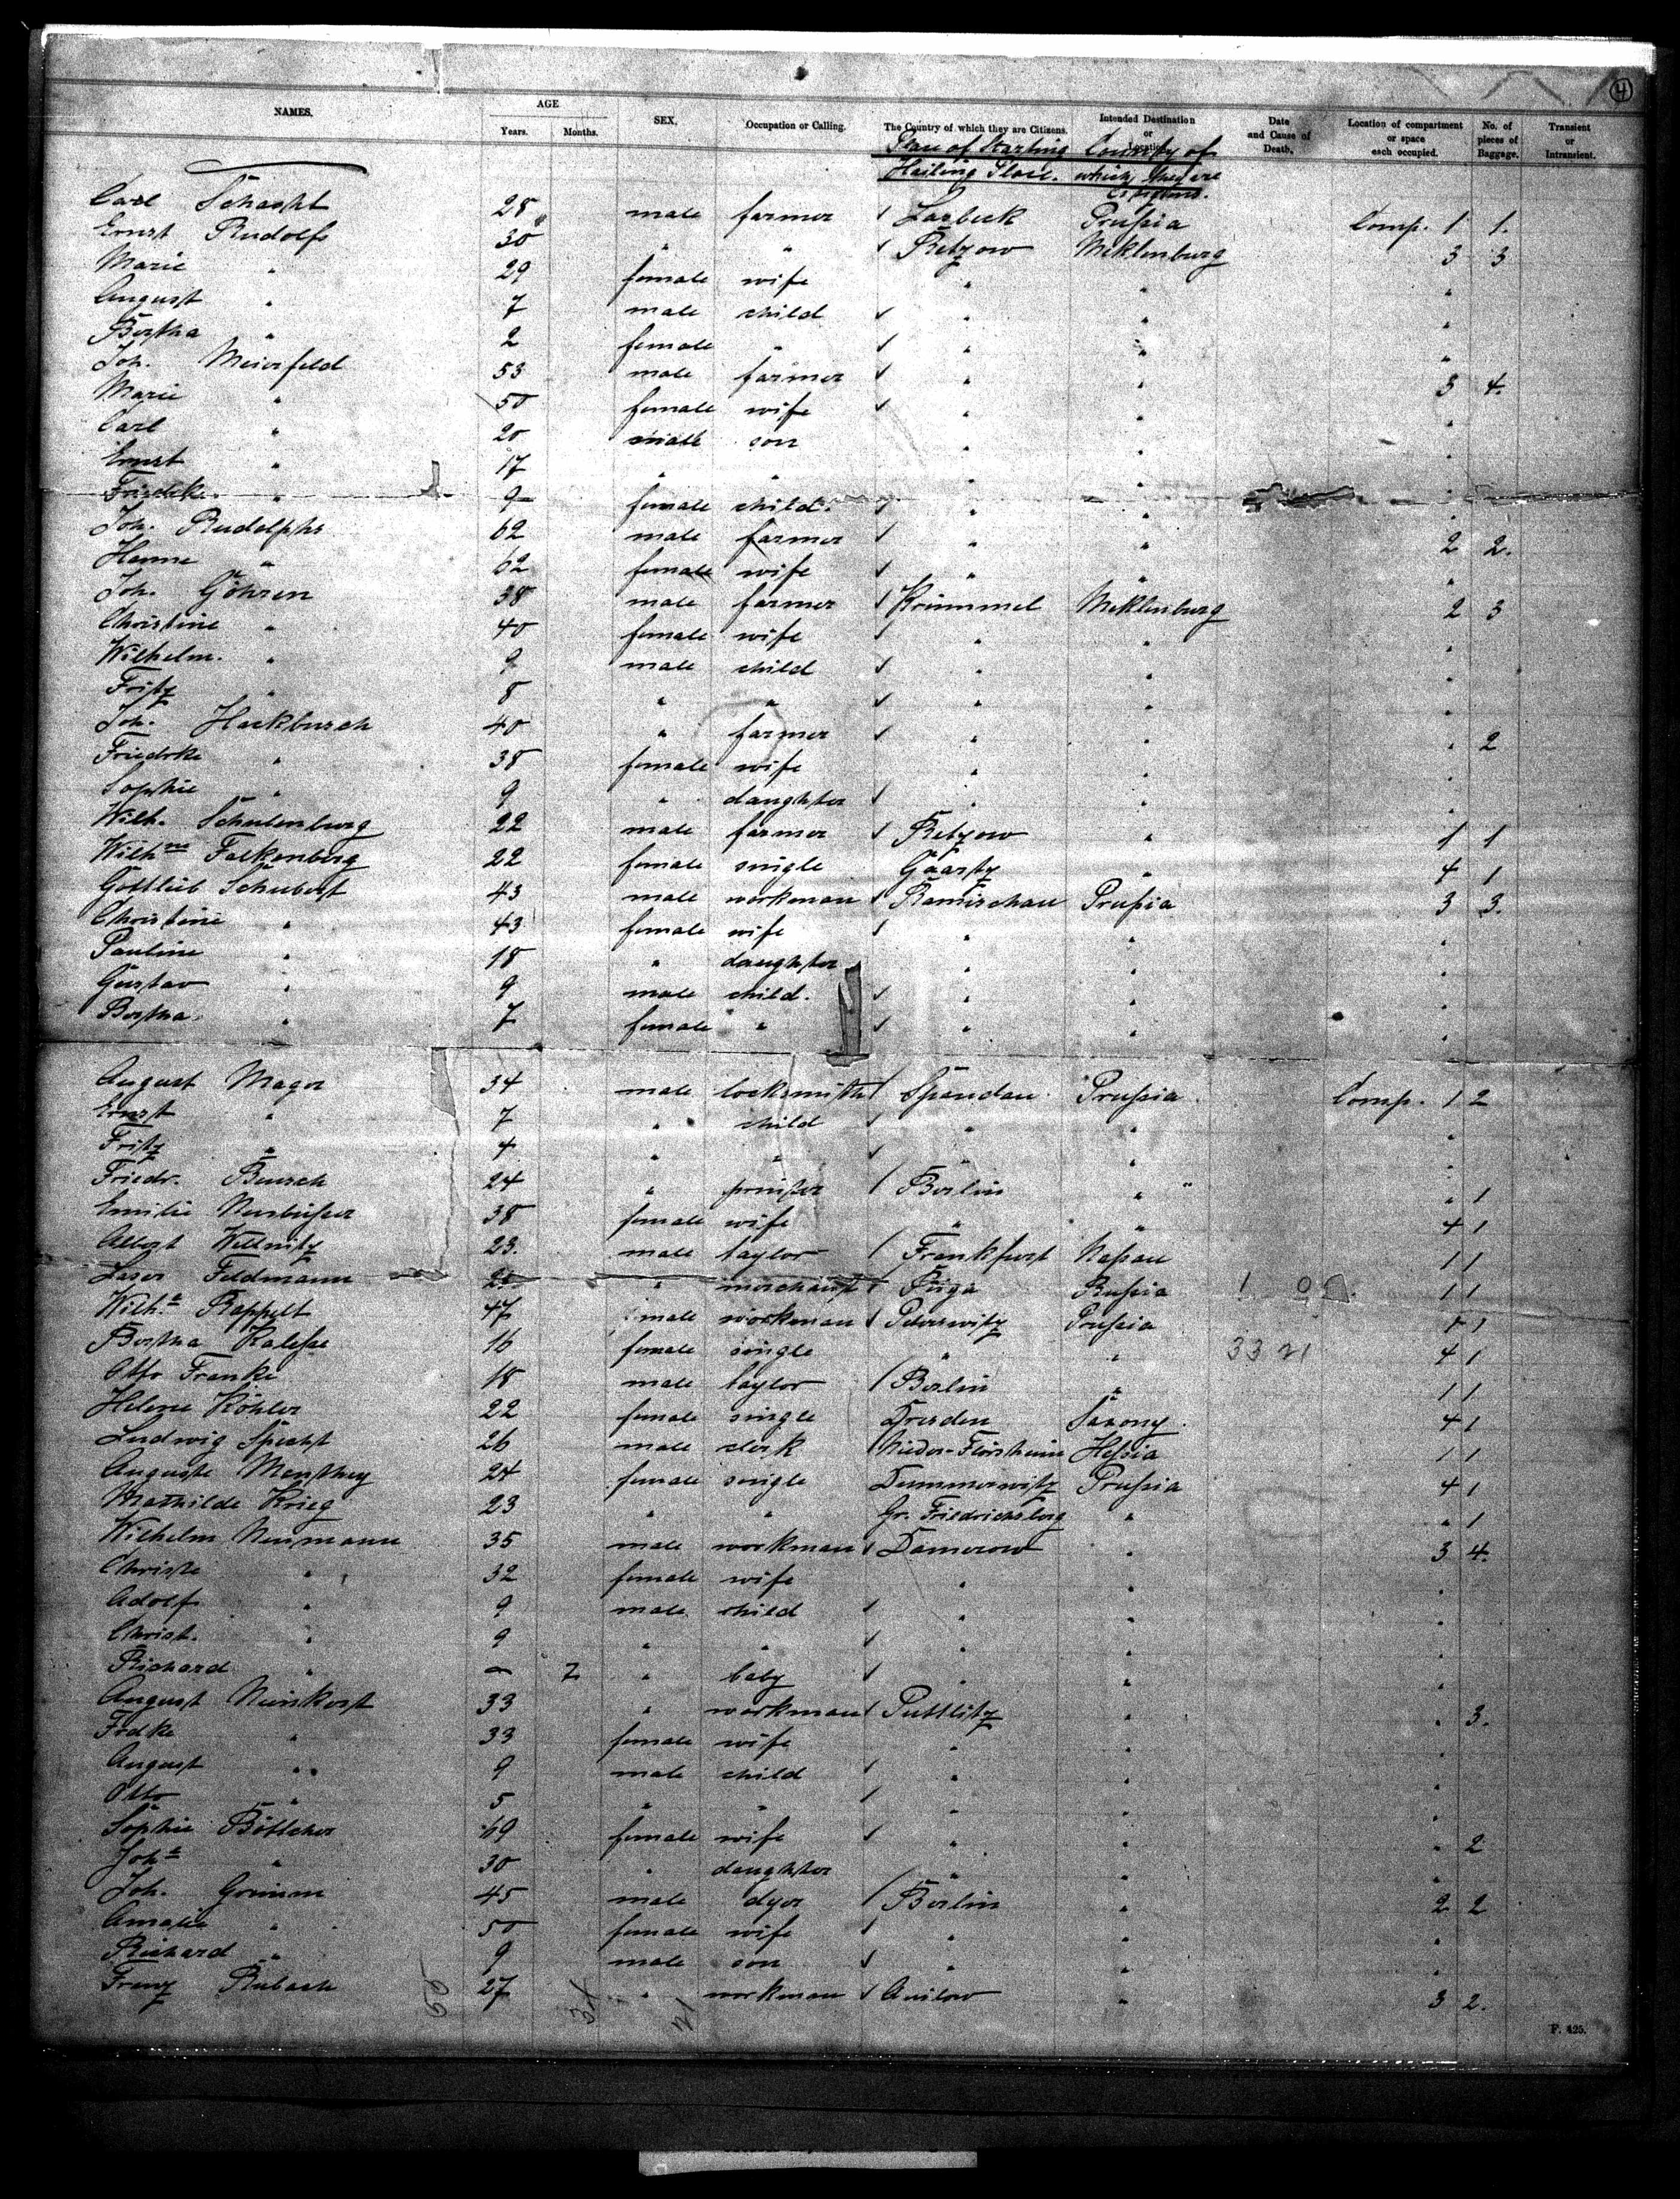 4
NAMES. AGE Years. Months. SEX. Occupation or Calling. The Country of which they are Citizens. Intended Destination or Location. Date and Cause of Death. Location of compartment or space each occupied. No. of pieces of Baggage. Transient or Intransient.
Place of Starting Country of
Hailing Place. which they are
Citizens.
Carl Schacht 28 male farmer Lasbeck Prußia Comp. 1 1.
Ernst Rudolfs 30 " " Retzow Meklenburg 3 3
Marie " 29 female wife " " "
August " 7 male child " " "
Bertha " 2 female " " " "
Joh. Meierfeld 53 male farmer " " 3 4.
Marie " 50 female wife " " "
Carl " 20 male son " " "
Ernst " 17 " " " " "
Friedke. " 9 female child. " " "
Joh. Rudolphs 62 male farmer " " 2 2.
Henne " 62 female wife " " "
Joh. Göhren 38 male farmer Krümmel Meklenburg 2 3
Christine " 40 female wife " " "
Wilhelm. " 9 male child " " "
Fritz " 8 " " " " "
Joh. Hackbusch 40 " farmer " " " 2
Friedrke " 38 female wife " " "
Sophie " 9 " daughter " " "
Wilh. Schulenburg 22 male farmer Retzow " 1 1
Wilhne Falkenberg 22 female single Gaartz " 4 1
Gottlieb Schubert 43 male workman Ramischau Prußia 3 3.
Christine " 43 female wife " " "
Pauline " 18 " daughter " " "
Gustav " 9 male child. " " "
Bertha " 7 female " " " "
August Mager 34 male locksmith Spandau Prußia Comp. 1 2
Ernst " 7 " child " " "
Fritz " 4 " " " " "
Friedr. Busch 24 " printer Berlin " " 1
Emilie 38 female wife " " 4 1
Albert Wellnitz 23. male taylor Frankfurt Naßau 1 1
Laser Feldmann " merchant Riga Rußia 1 1
Wilh. Rappelt 47 male workman Peterwitz Prußia 1 1
Bertha Kaleße 16 female single " " 33 21 4 1
Otto Franke 18 male taylor Berlin " 1 1
Helene Köhler 22 female single Dresden Saxony 4 1
Ludwig Specht 26 male clerk Nieder-Florsheim Heßia 1 1
Auguste Menthey 24 female single Dummerwitz Prußia 4 1
Mathilde Krieg 23 " " Gr. Friedrichsberg " " 1
Wilhelm Neumann 35 male workman Damerow " 3 4.
Christe " 32 female wife " " "
Adolf " 9 male child " " "
Christ. " 9 " " " "
Richard " - 7 " baby " " "
August Neinkost 33 " workman Puttlitz " " 3.
Frdke " 33 female wife " " "
August " 9 male child " " "
Otto " 5 " " " " "
Sophie Böttcher 69 female wife " " " 2
Johe " 30 " daughter " " "
Joh. Grimm 45 male dyer Berlin " 2 2
Amalie " 50 female wife " " "
Richard " 9 male son " " "
Franz Rubach 27 " workman " 3 2.
F. 425.